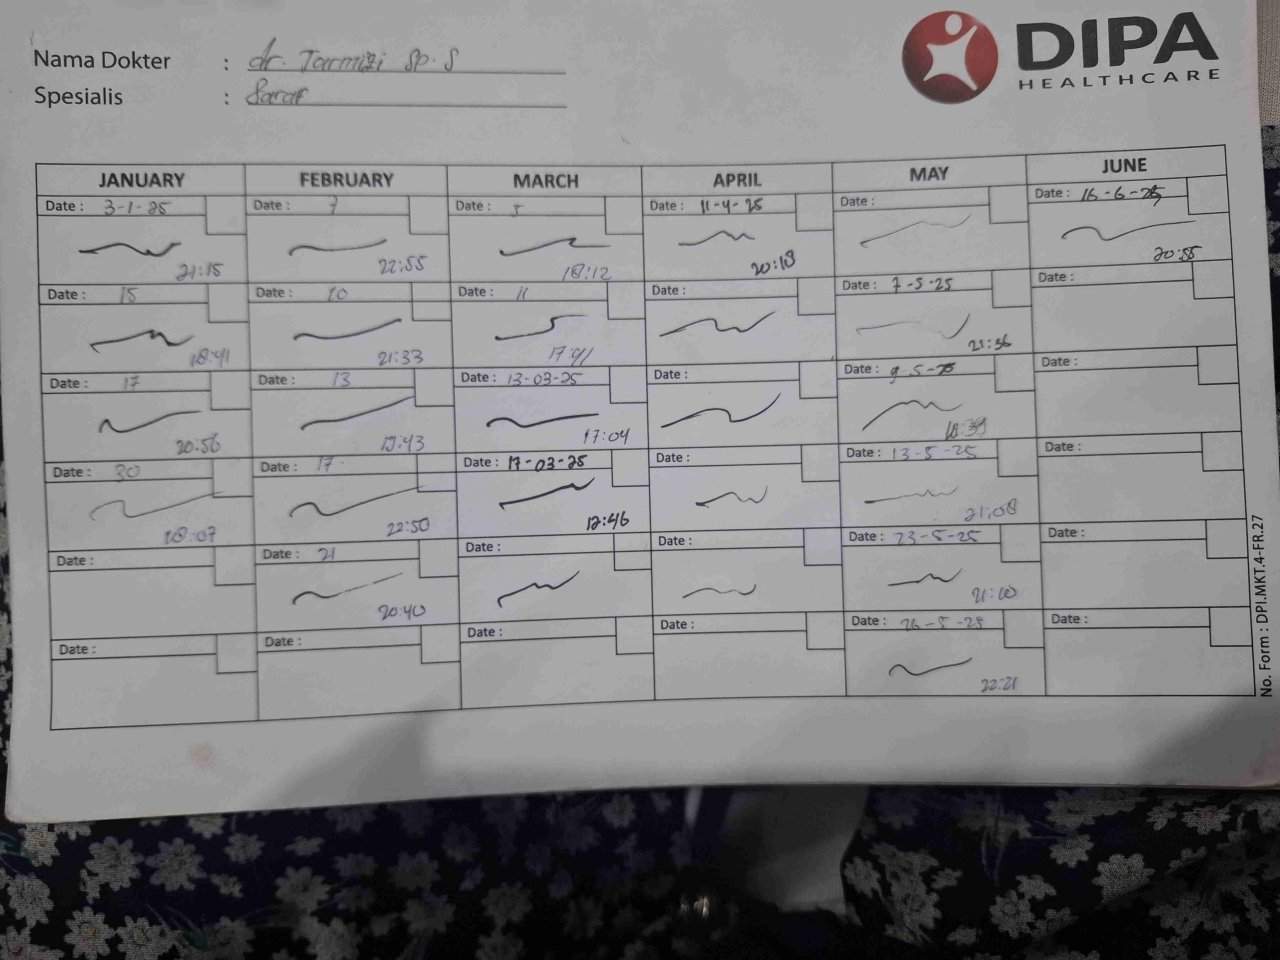 DIPA
HEALTHCARE
Nama Dokter : dr. Tarmizi Sp. S
Spesialis : Saraf
JANUARY FEBRUARY MARCH APRIL MAY JUNE
Date : 3-1-25 Date : 7 Date : 5 Date : 11-4-25 Date : Date : 16-6-25
21:15 22:55 18:12 20:18 20:55
Date : 15 Date : 10 Date : 11 Date : Date : 7-5-25 Date :
18:41 21:33 17:41 21:36
Date : 17 Date : 13 Date : 13-03-25 Date : Date : 9-5-25 Date :
20:56 17:04 18:39
Date : 30 Date : 17 Date : 17-03-25 Date : Date : 13-5-25 Date :
18:07 22:50 12:46 21:08
Date : Date : 21 Date : Date : Date : 23-5-25 Date :
20:40 21:10
Date : Date : Date : Date : Date : 26-5-25 Date :
22:21
No. Form : DPI.MKT.4-FR.27